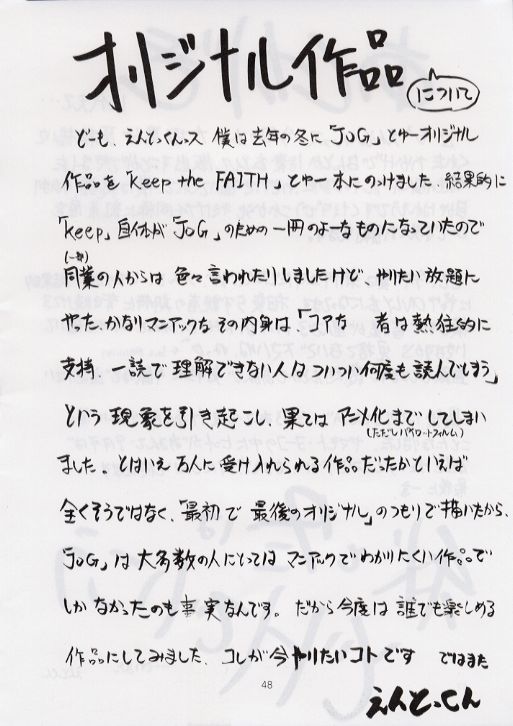 オリジナル作品
について
どーも、えんどっくんっス 僕は去年の冬に「JoG」とゆーオリジナル
作品を「Keep the FAITH」とゆー本にのっけました。結果的に
「Keep」自体が「JoG」のための一冊のよーなものになっていたので
(一部)
同業の人からは 色々言われたりしましたけど、やりたい放題に
やった、かなりマニアックな その内身は「コアな 者は熱狂的に
支持、一読で理解できない人はついつい何度も読んでしまう」
という 現象を引き起こし、果ては アニメ化までしてしまい
(ただしパイロットフィルム)
ました。とはいえ万人に受け入れられる作品だったかといえば
全くそうではなく、「最初で 最後のオリジナル」のつもりで描いたから、
「JoG」は大多数の人にとっては マニアックでわかりにくい作品で
しかなかったのも事実なんです。だから今度は 誰でも楽しめる
作品にしてみました。コレが今やりたいコトです ではまた
48